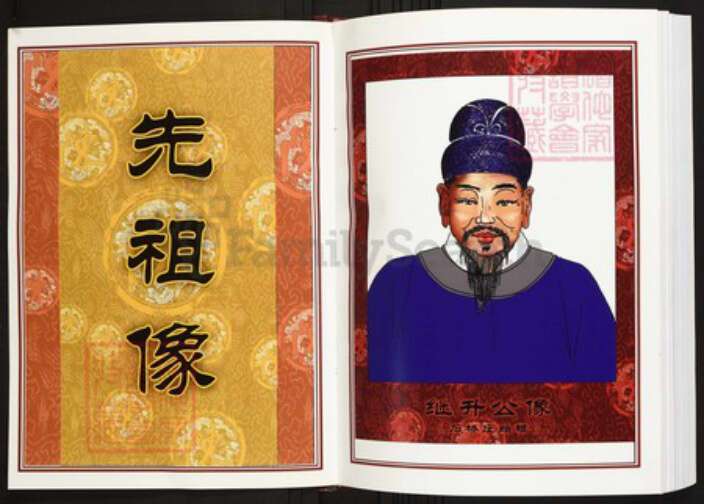 先祖像
FamilySearch
继升公像